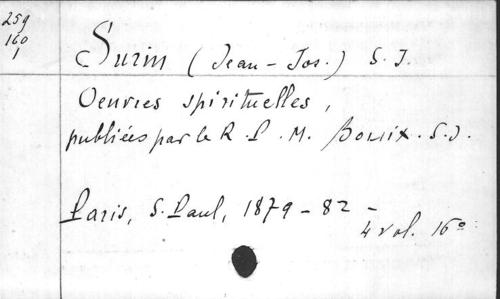 259
160
1
Surin (Jean-Jos.) S.J.
Oeuvres spirituelles,
publiées par le R.P.M. Bouix. S.J.
Paris, S. Paul, 1879-82 -
4 vol. 16º